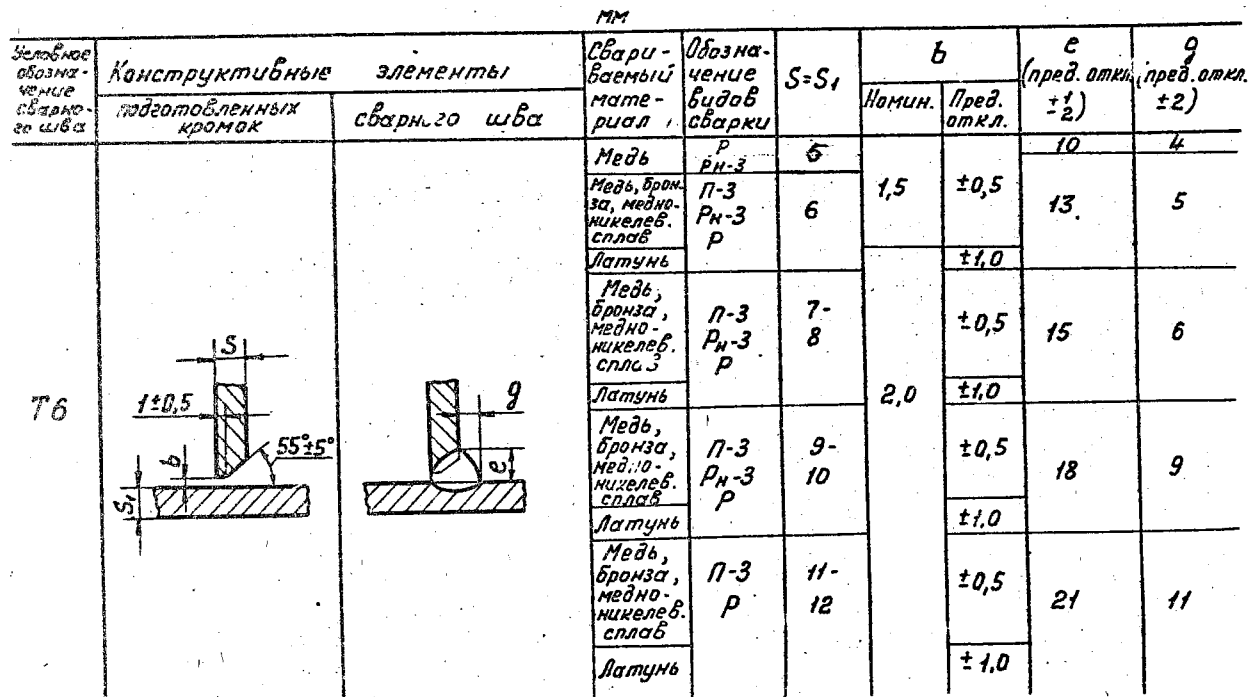 мм
Условное
обозна-
чение
сварно-
го шва
Конструктивные элементы
подготовленных
кромок
сварного шва
Свари-
ваемый
мате-
риал
Обозна-
чение
видов
сварки
S=S₁
b
Номин.
Пред.
откл.
e
(пред. откл.
+1
-2)
g
(пред. откл.
±2)
Т6
S
1±0,5
b
55°±5°
S₁
g
e
Медь
Р
Рн-3
5
1,5
±0,5
10
4
Медь, брон-
за, медно-
никелев.
сплав
П-3
Рн-3
Р
6
13
5
Латунь
2,0
±1,0
Медь,
бронза,
медно-
никелев.
сплав
П-3
Рн-3
Р
7-
8
±0,5
15
6
Латунь
±1,0
Медь,
бронза,
медно-
никелев.
сплав
П-3
Рн-3
Р
9-
10
±0,5
18
9
Латунь
±1,0
Медь,
бронза,
медно-
никелев.
сплав
П-3
Р
11-
12
±0,5
21
11
Латунь
±1,0